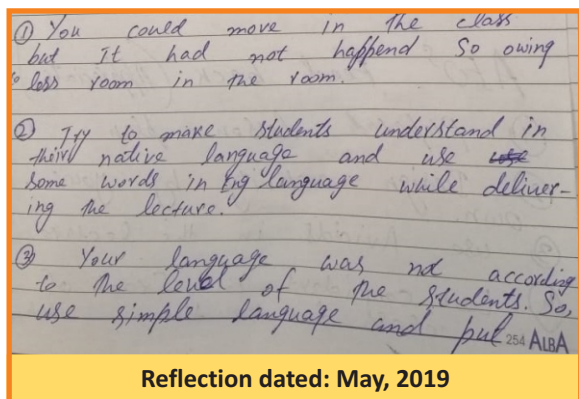 ① You could move in the class
but It had not happend So owing
to less room in the room.
② Try to make students understand in
their native language and use use
some words in Eng language while deliver-
ing the lecture.
③ Your language was not according
to the level of the students. So,
use simple language and put
254 ALBA
Reflection dated: May, 2019